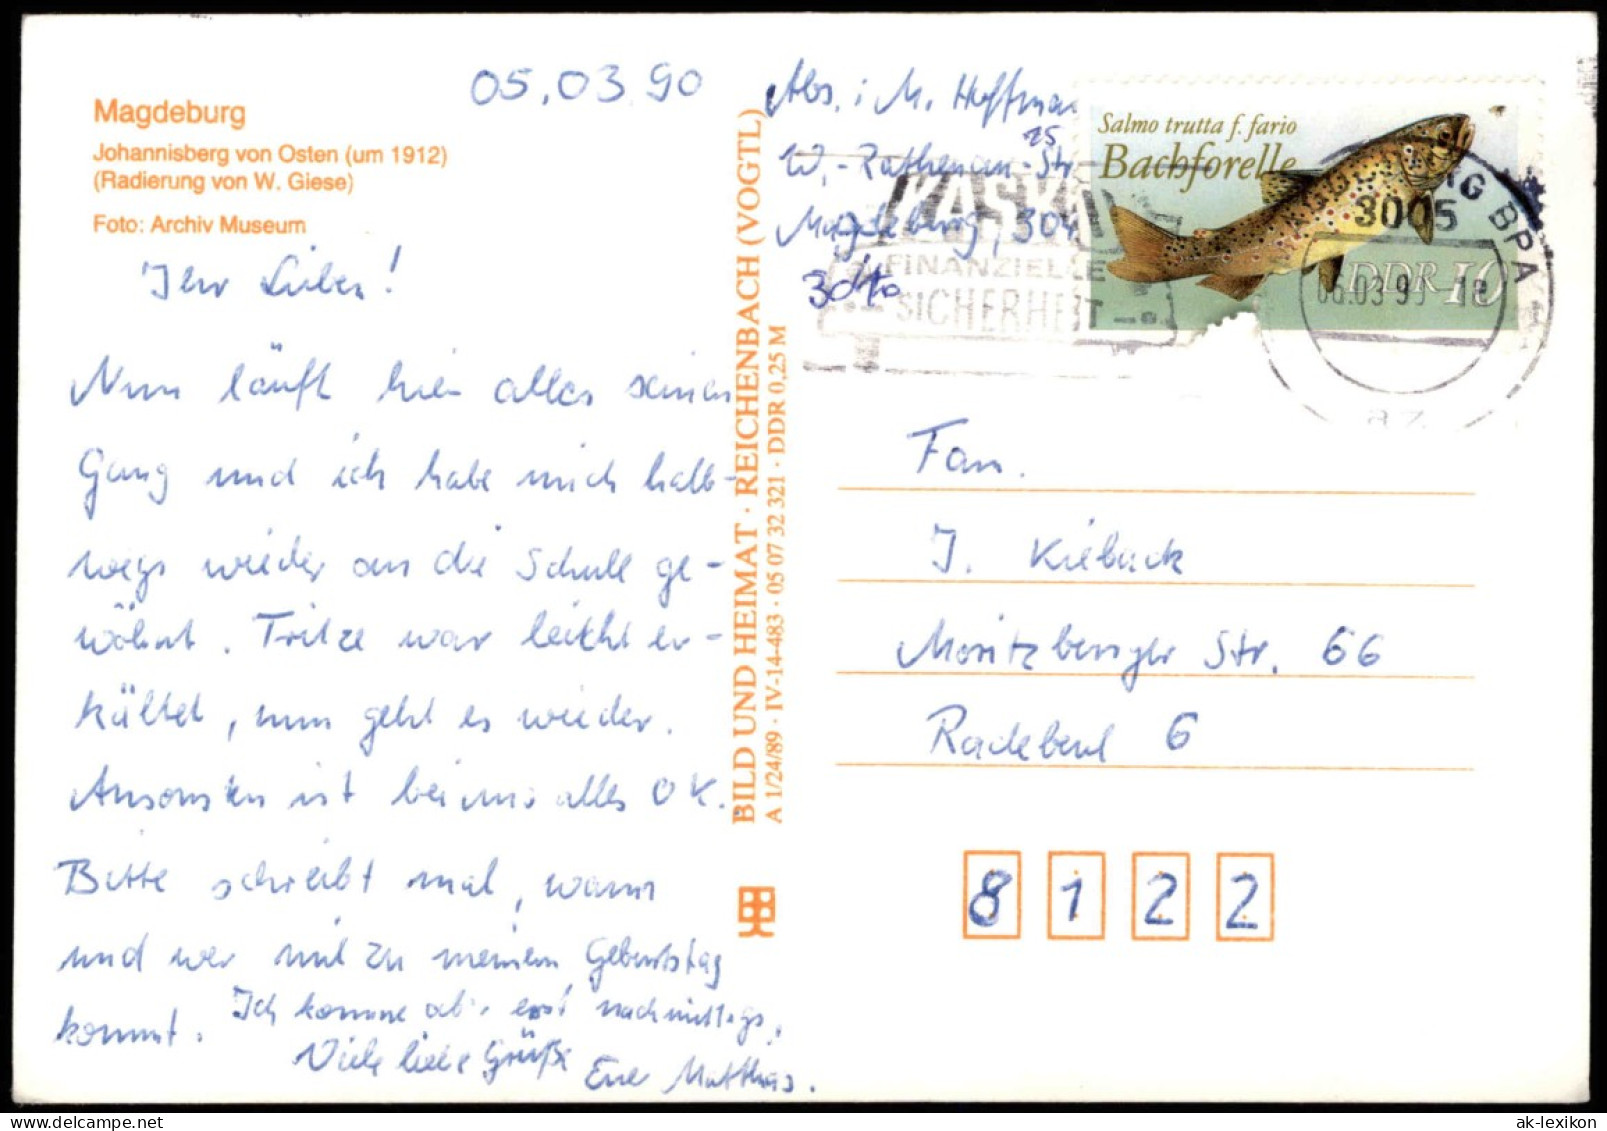 05.03.90
Magdeburg
Johannisberg von Osten (um 1912)
(Radierung von W. Giese)
Foto: Archiv Museum
Ihr Lieben!
Nun läuft hier alles seinen
Gang und ich habe mich halb-
wegs wieder an die Schule ge-
wöhnt. Fritze war leicht er-
kältet, nun geht es wieder.
Ansonsten ist bei uns alles OK.
Bitte schreibt mal, wann
und wer mit zu meinem Geburtstag
kommt. Ich komme ab. erst nachmittags.
Viele liebe Grüße Euer Matthias.
BILD UND HEIMAT · REICHENBACH (VOGTL)
A 1/24/89 · IV-14-483 · 05 07 32 321 · DDR 0,25 M
Abs.: M. Hoffman
W.-Rathenau-Str 25
Magdeburg, 304
3040
KASKO
FINANZIELLE
SICHERHEIT
Salmo trutta f. fario
Bachforelle
DDR 10
MAGDEBURG BPA
3005
06.03.90-18
az
Fam.
J. Kieback
Moritzberger Str. 66
Radebeul 6
8122
ak-lexikon